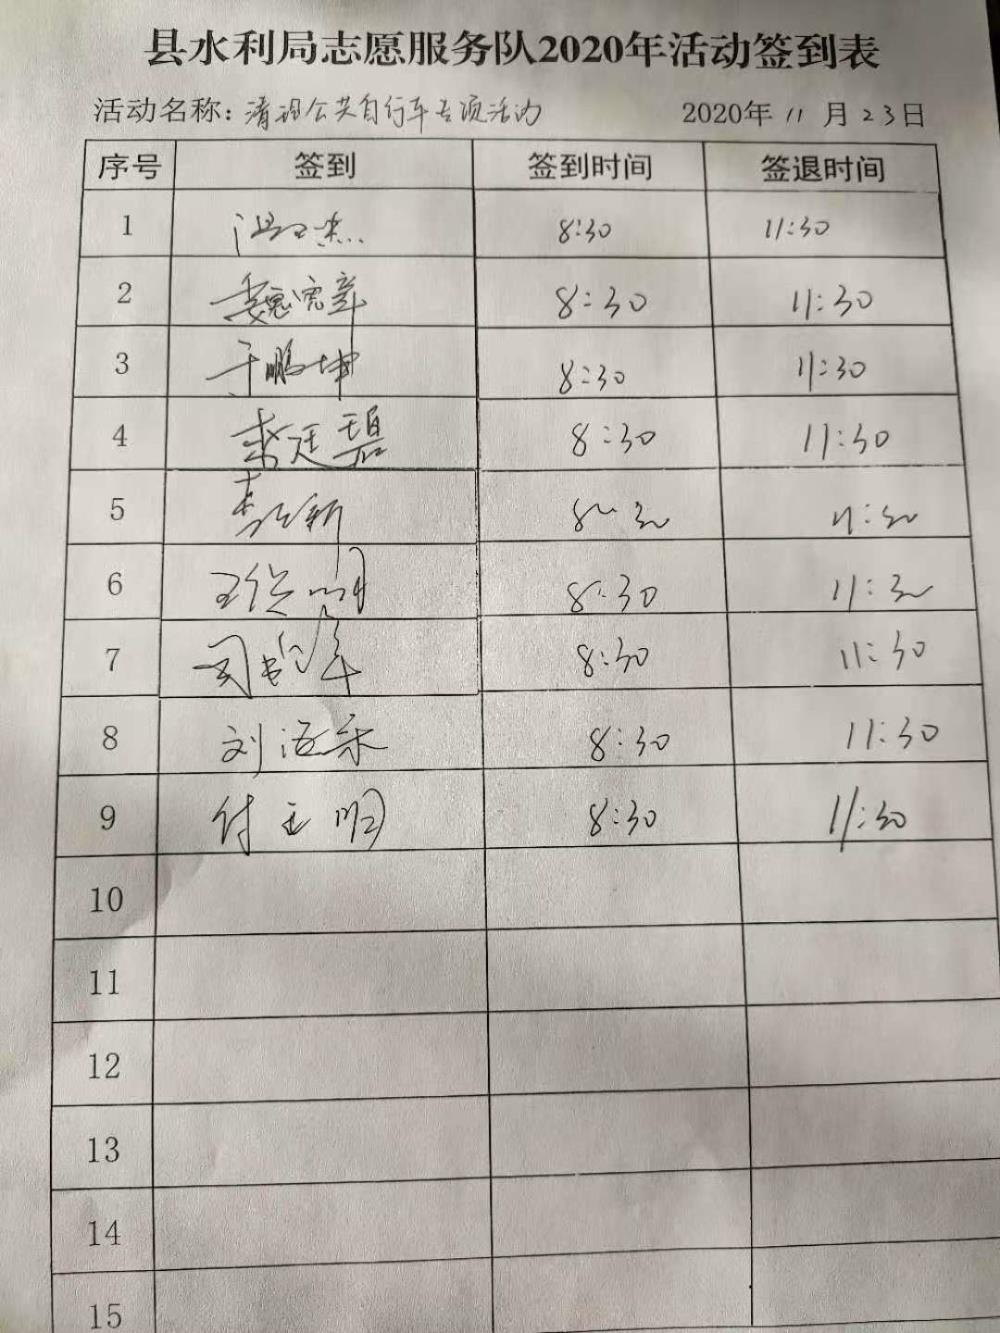 县水利局志愿服务队2020年活动签到表
活动名称：清理公共自行车专项活动 2020年 11 月 23日
序号 签到 签到时间 签退时间
1 8:30 11:30
2 魏 章 8:30 11:30
3 于鹏坤 8:30 11:30
4 廷碧 8:30 11:30
5 新 8:30 11:30
6 王 明 8:30 11:30
7 司 军 8:30 11:30
8 刘 8:30 11:30
9 付 明 8:30 11:30
10
11
12
13
14
15